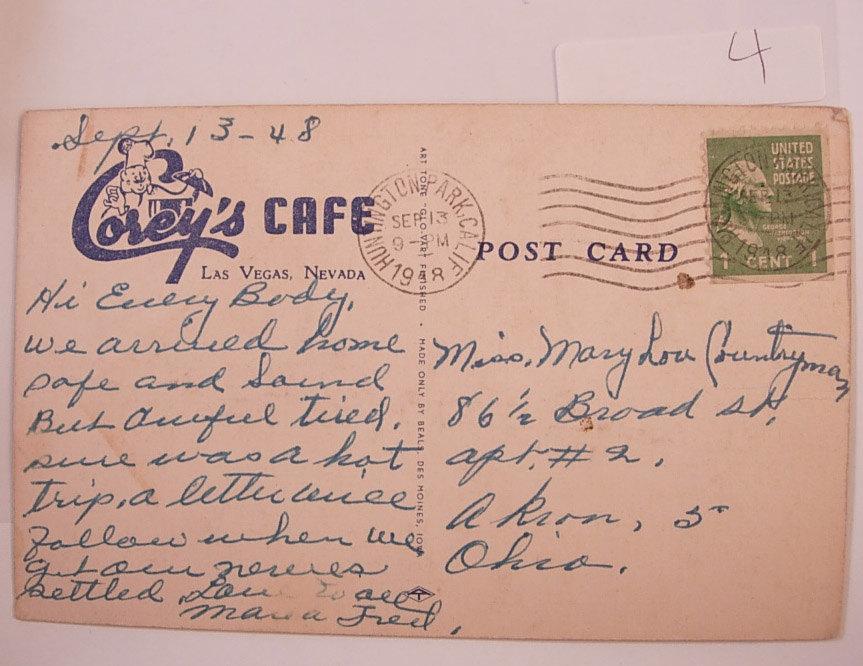 4
Sept. 13-48
Corey's CAFE
LAS VEGAS, NEVADA
Hi Every Body,
we arrived home
safe and sound
But awful tired.
sure was a hot
trip, a letter will
follow when we
get our nerves
settled. Love to
Fred.
ART TONE "GLO-VAR" FINISHED • MADE ONLY BY BEALS, DES MOINES, IOWA
HUNTINGTON PARK, CALIF
SEP 13
9 - PM
1948
POST CARD
UNITED
STATES
POSTAGE
GEORGE
WASHINGTON
1 CENT 1
SEP 13
PM
1948
Miss. Mary Lou Countryman
86 1/2 Broad st,
apt. # 2.
Akron, 5
Ohio.